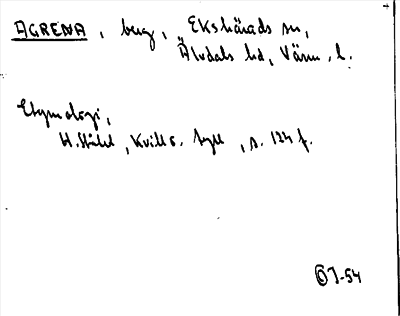 AGRENA, berg, Ekshärads sn,
Älvdals hd, Värm. l.
Etymologi,
H. Ståhl, Kvill o. tyll, s. 124 f.
ÖJ-54